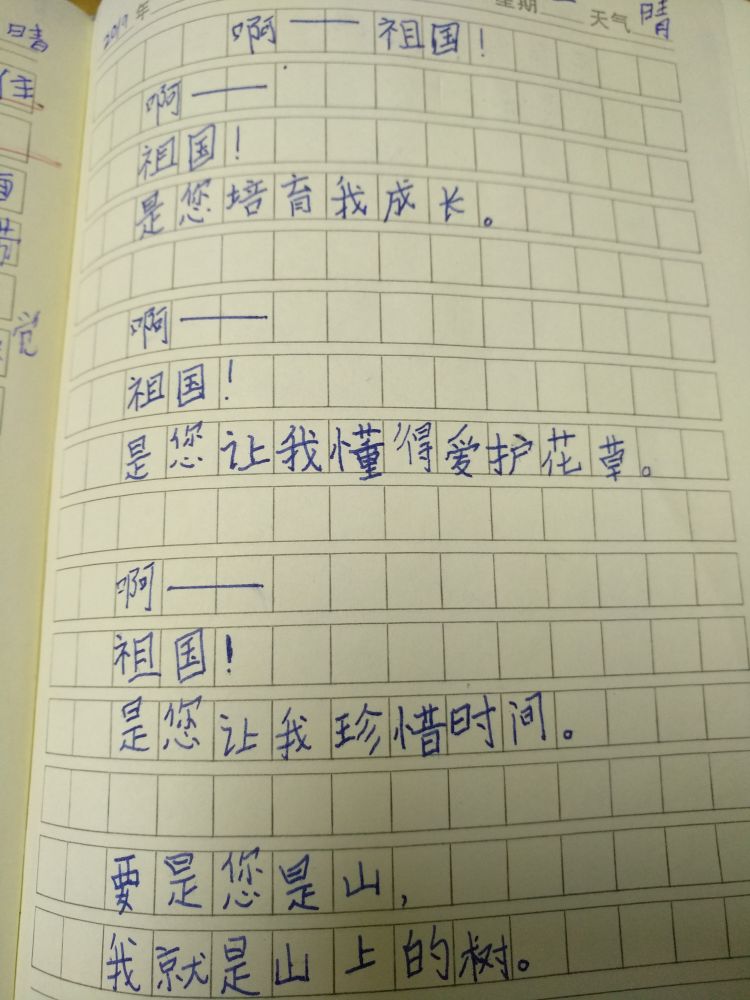 2019年 星期一 天气晴
啊——祖国！
啊——
祖国！
是您培育我成长。
啊——
祖国！
是您让我懂得爱护花草。
啊——
祖国！
是您让我珍惜时间。
要是您是山，
我就是山上的树。
晴
住
觉